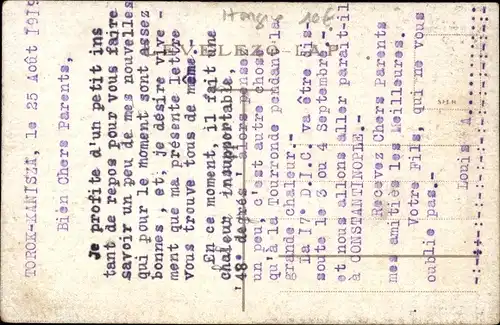 TOROK-KANISZA, le 25 Août 1919
Bien Chers Parents,
Je profite d'un petit ins
tant de repos pour vous faire
savoir un peu de mes nouvelles
qui pour le moment sont assez
bonnes , et, je désire vive -
ment que ma présente lettre
vous trouve tous de même.
En ce moment, il fait une
chaleur insupportable,
'48° degrés' alors pense
un peu, c'est autre chose
qu'à la Tourronde pendant la
grande chaleur.-
La 17° D.I.C. va être dis-
soute le 3 ou 4 Septembre-,
et nous allons aller parait-il
à CONSTANTINOPLE.-
Recevez Chers Parents
mes amitiés les Meilleures.
Votre Fils, qui ne vous
oublie pas.-
Louis A
LEVELEZŐ-LAP
Hongrie 10€